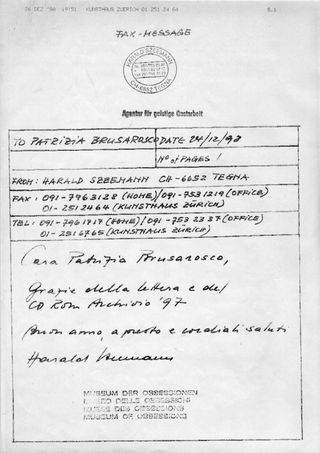 KUNSTHAUS ZUERICH 01 251 24 64
FAX-MESSAGE
HARALD SZEEMANN
CH-6652 TEGNA
Agentur für geistige Gastarbeit
TO PATRIZIA BRUSAROSCO DATE 24/12/98
N° of PAGES 1
FROM: HARALD SZEEMANN CH-6652 TEGNA
FAX: 091-7963128 (HOME)/091-7531219 (OFFICE)
01-2512464 (KUNSTHAUS ZÜRICH)
TEL: 091-7961717 (HOME)/091-753 22 37 (OFFICE)
01-2516765 (KUNSTHAUS ZÜRICH)
Cara Patrizia Brusarosco,
Grazie della lettera e del
CD Rom Archivio '97
Buon anno, a presto e cordiali saluti
Harald Szeemann
MUSEUM DER OBSESSIONEN
MUSEO DELLE OSSESSIONI
MUSEE DES OBSESSIONS
MUSEUM OF OBSESSIONS